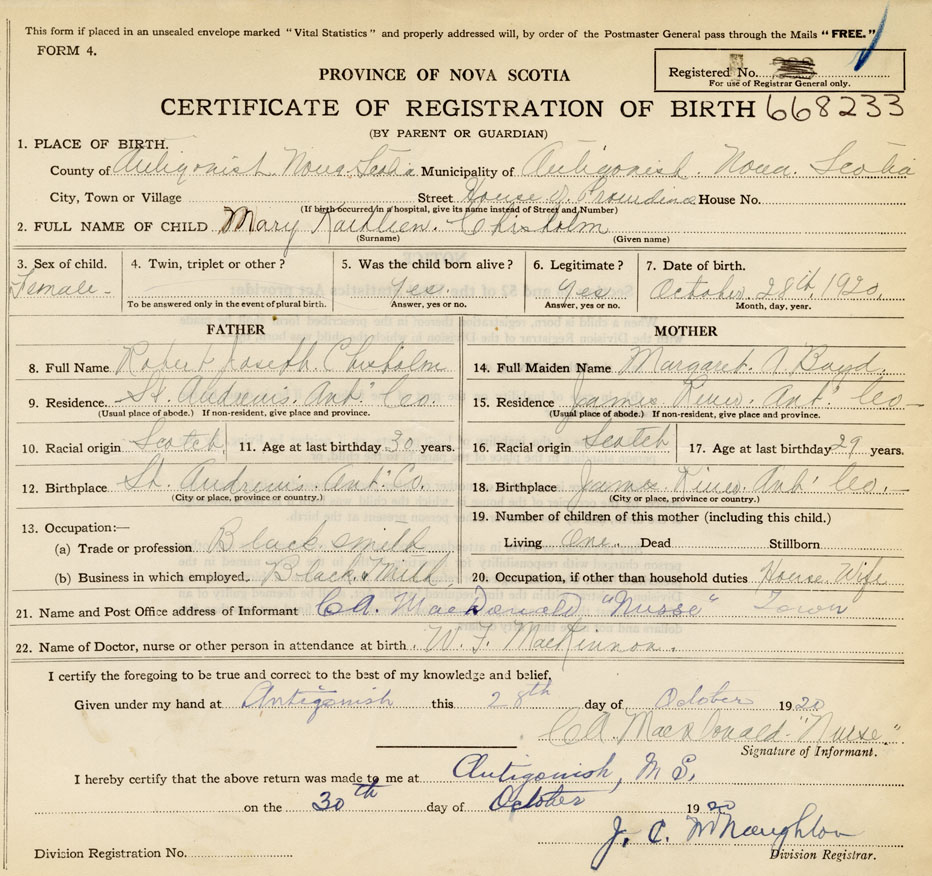 This form if placed in an unsealed envelope marked "Vital Statistics" and properly addressed will, by order of the Postmaster General pass through the Mails "FREE."
FORM 4.
PROVINCE OF NOVA SCOTIA
Registered No.
For use of Registrar General only.
CERTIFICATE OF REGISTRATION OF BIRTH 668233
(BY PARENT OR GUARDIAN)
1. PLACE OF BIRTH.
County of Antigonish Nova Scotia Municipality of Antigonish Nova Scotia
City, Town or Village Street House of Providence House No.
(If birth occurred in a hospital, give its name instead of Street and Number)
2. FULL NAME OF CHILD Mary Kathleen Chisholm
(Surname) (Given name)
3. Sex of child. 4. Twin, triplet or other? 5. Was the child born alive? 6. Legitimate? 7. Date of birth.
Female - Yes. Yes October 28th, 1920.
To be answered only in the event of plural birth. Answer, yes or no. Answer, yes or no. Month, day, year.
FATHER MOTHER
8. Full Name Robert Joseph Chisholm 14. Full Maiden Name Margaret A Boyd.
9. Residence. St. Andrews. Ant' Co. 15. Residence James River. Ant' Co -
(Usual place of abode.) If non-resident, give place and province. (Usual place of abode.) If non-resident, give place and province.
10. Racial origin Scotch 11. Age at last birthday 30 years. 16. Racial origin Scotch 17. Age at last birthday 29 years.
12. Birthplace St. Andrews Ant' Co. 18. Birthplace James River. Ant' Co. -
(City or place, province or country.) (City or place, province or country.)
13. Occupation:— 19. Number of children of this mother (including this child.)
(a) Trade or profession Black smith Living One. Dead Stillborn
(b) Business in which employed. Black Smith 20. Occupation, if other than household duties House Wife
21. Name and Post Office address of Informant C.A. MacDonald "Nurse" Town
22. Name of Doctor, nurse or other person in attendance at birth. W. F. MacKinnon.
I certify the foregoing to be true and correct to the best of my knowledge and belief.
Given under my hand at Antigonish this 28th day of October 1920
C.A. MacDonald "Nurse"
Signature of Informant.
I hereby certify that the above return was made to me at Antigonish, N S.
on the 30th day of October 1920
J. C. McNaughton
Division Registration No. Division Registrar.